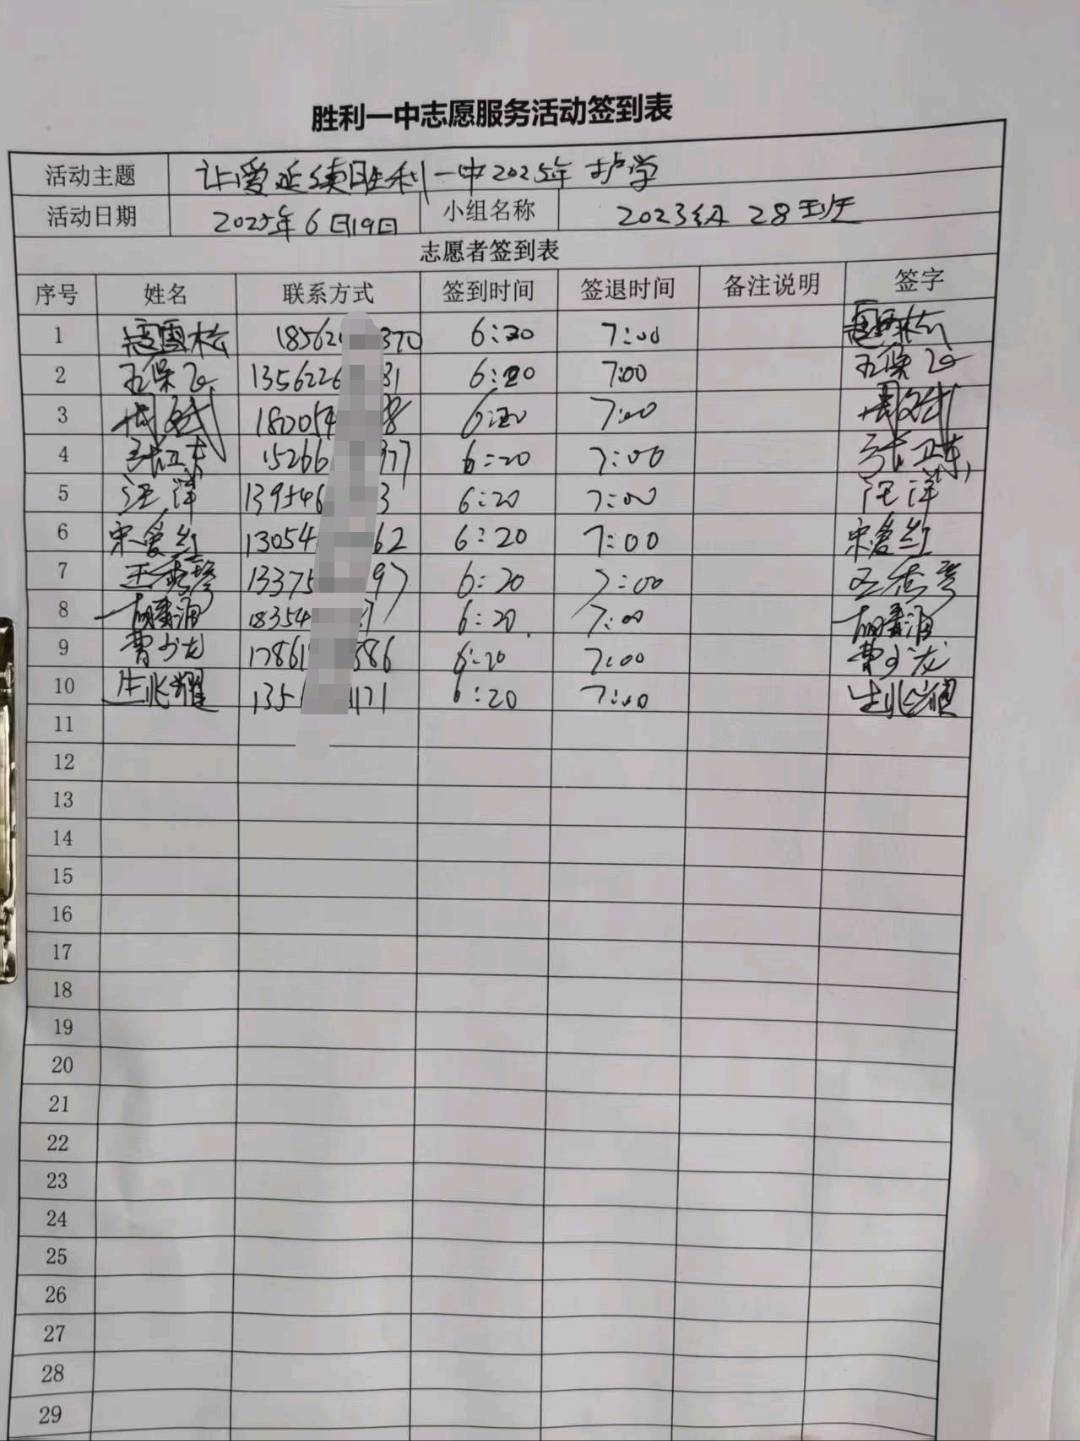 胜利一中志愿服务活动签到表
活动主题 让爱延续胜利一中2025年护学
活动日期 2025年6月19日 小组名称 2023级 28班
志愿者签到表
序号 姓名 联系方式 签到时间 签退时间 备注说明 签字
1 寇雪松 18562 370 6:20 7:00 寇雪松
2 王保飞 1356226 31 6:20 7:00 王保飞
3 18054 8 6:20 7:00
4 张卫东 15266 377 6:20 7:00 张卫东
5 汪洋 139546 3 6:20 7:00 汪洋
6 宋爱红 13054 62 6:20 7:00 宋爱红
7 13375 97 6:20 7:00
8 18354 7 6:20 7:00
9 曹少龙 1786 586 6:20 7:00 曹少龙
10 生兆耀 135 171 6:20 7:00 生兆耀
11
12
13
14
15
16
17
18
19
20
21
22
23
24
25
26
27
28
29